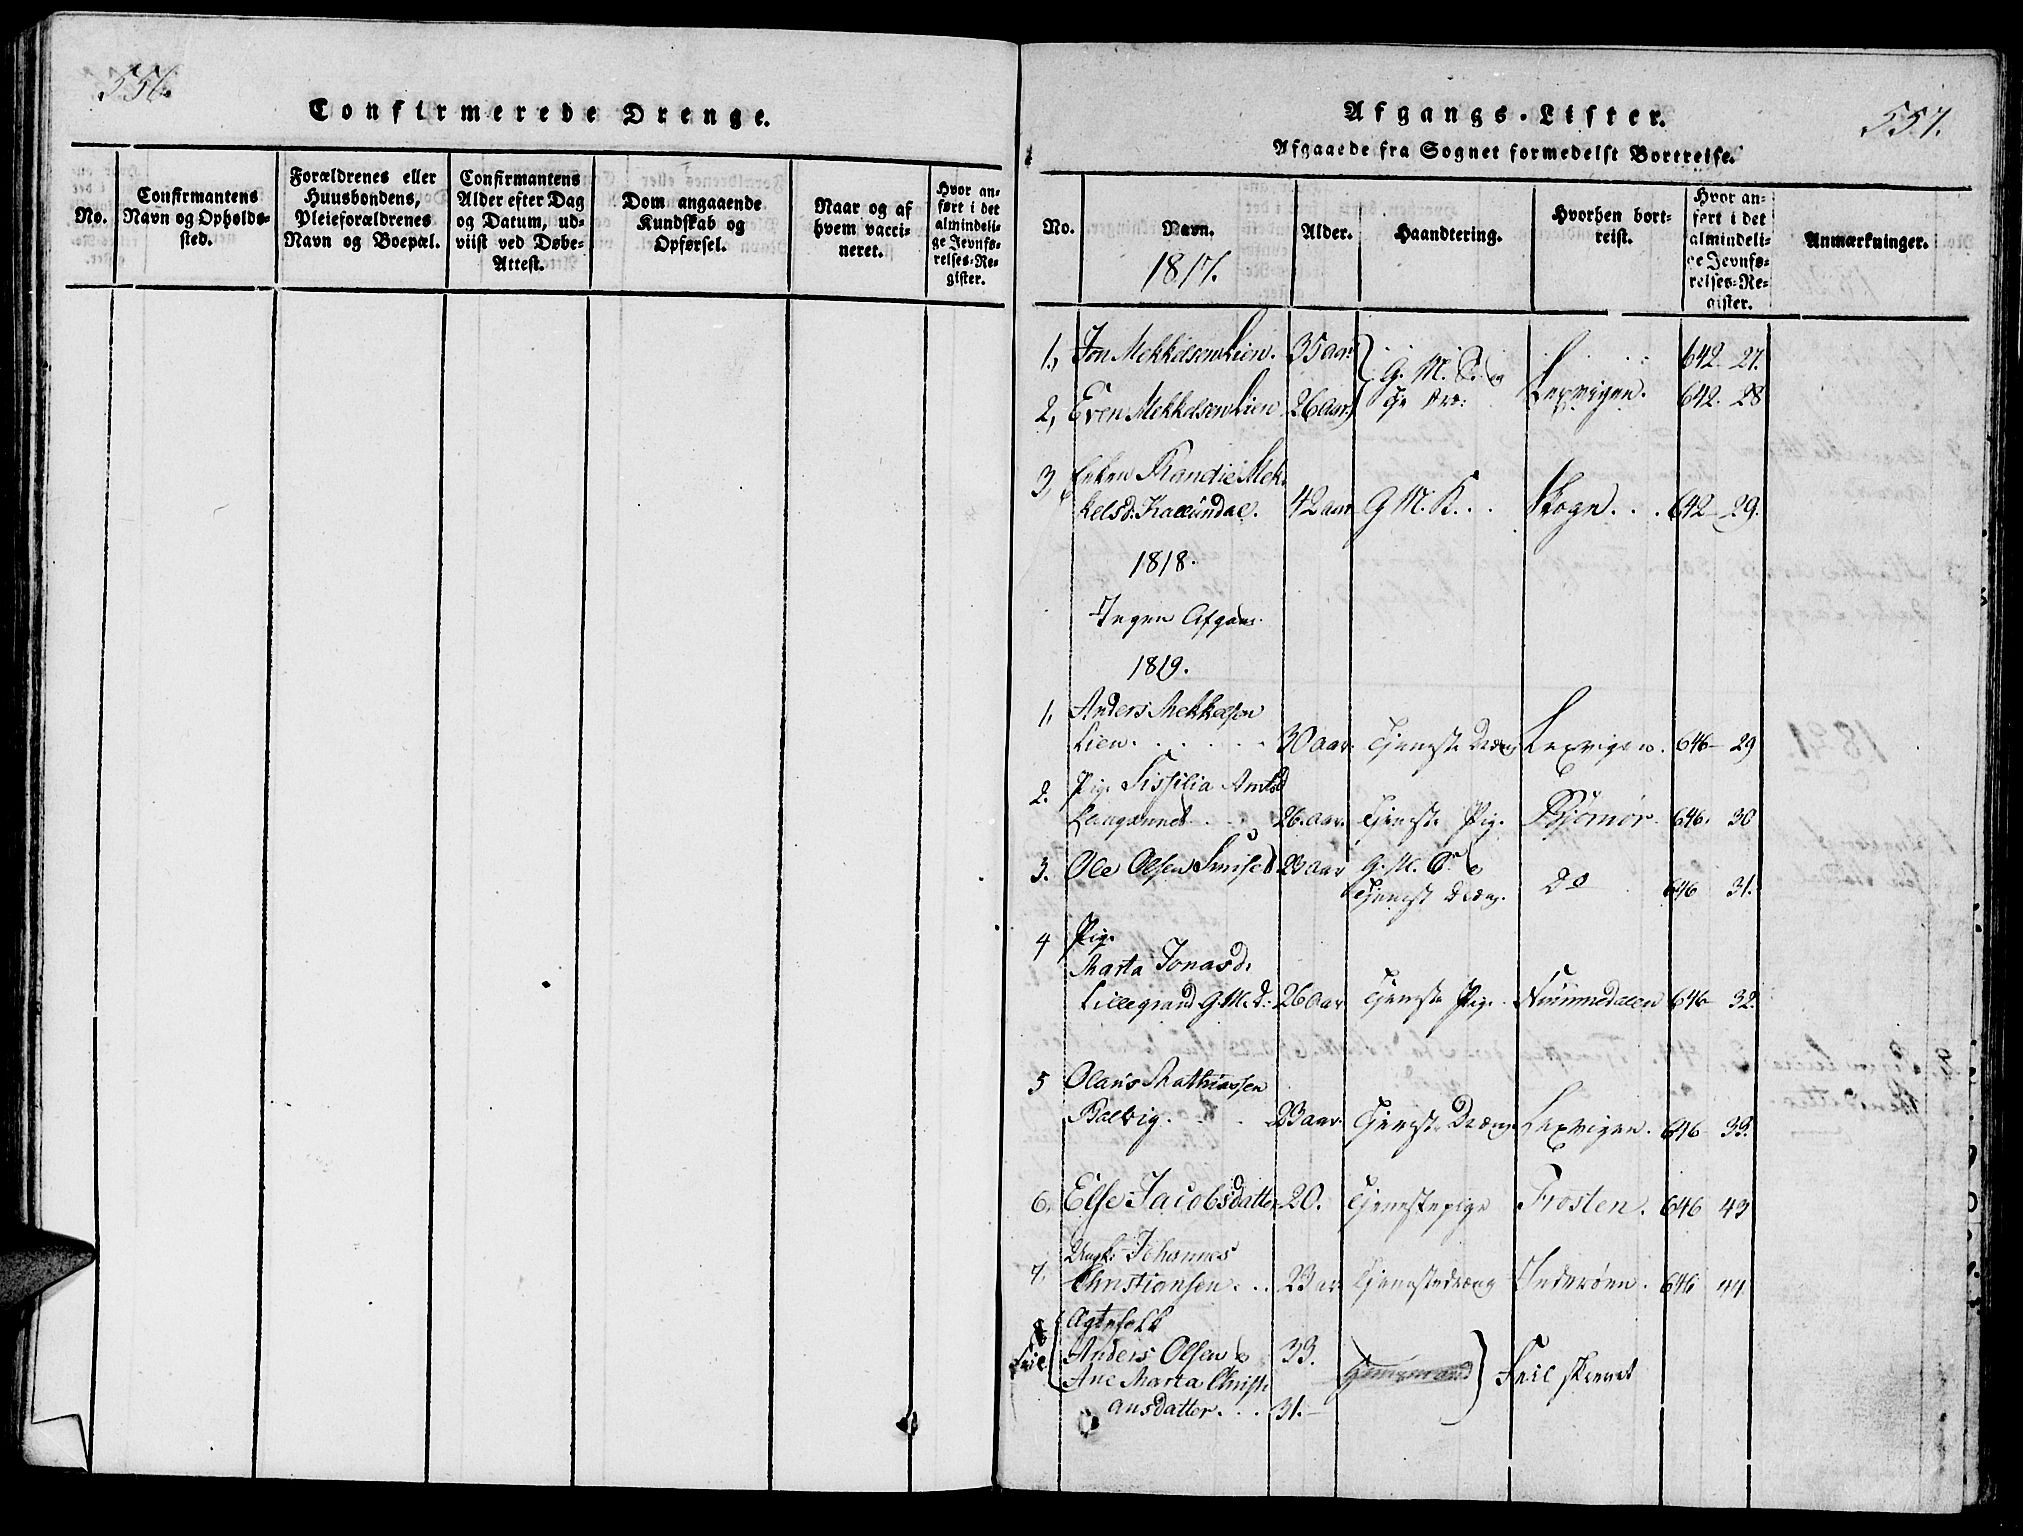 556.
Confirmerede Drenge.
No.
Confirmantens Navn og Opholdssted.
Forældrenes eller Huusbondens, Pleieforældrenes Navn og Boepæl.
Confirmantens Alder efter Dag og Datum, udviist ved Døbe-Attest.
Dom angaaende Kundskab og Opførsel.
Naar og af hvem vaccineret.
Hvor anført i det almindelige Jevnførelses-Register.
557.
Afgangs-Lister.
Afgaaede fra Sognet formedelst Bortreise.
No.
Navn.
Alder.
Haandtering.
Hvorhen bortreist.
Hvor anført i det almindelige Jevnførelses-Register.
Anmærkninger.
1817.
1, Jon Mekkelsen Lien. 35 aar G. M. S. og 642 27.
2, Even Mekkelsen Lien 26 aar Lexvigen. 642. 28
3, Enken Randie Mek-
kelsd. Kaelundal. 42 aar G M. K. . . Skogn. . . 642 - 29.
1818.
Ingen Afgang
1819.
1, Anders Mekkelsen
Lien. . . . . . 30 aar. Tjeneste Dreng Lexvigen. 646 - 29
2. Pig. Sissilia
26. aar. Tjeneste Pig. 646. 30
3. Ole Olsen 23 aar G. M. S.
Tjenest Dreng. Do 646 31.
4 Pig.
Marta Jonasd.
Lillegrand G. M. d: 26 aar Tjeneste Pige. Nummedalen 646 32.
5 Olaus Mathiassen
Balvig. . . . 23 aar. Tjeneste Dreng Lexvigen. 646 33.
6. Else Jacobsdatter 20. Tjenestepige Frosten. 646 43
7. Ungk: Johannes
Christiansen. . . 23 ar Tjenestedreng Inderøen. 646 44
8 Ægtefolk
Feil Anders Olsen & 33.
Ane Marta Christi- Feil skrevet
ansdatter. . . 31. -